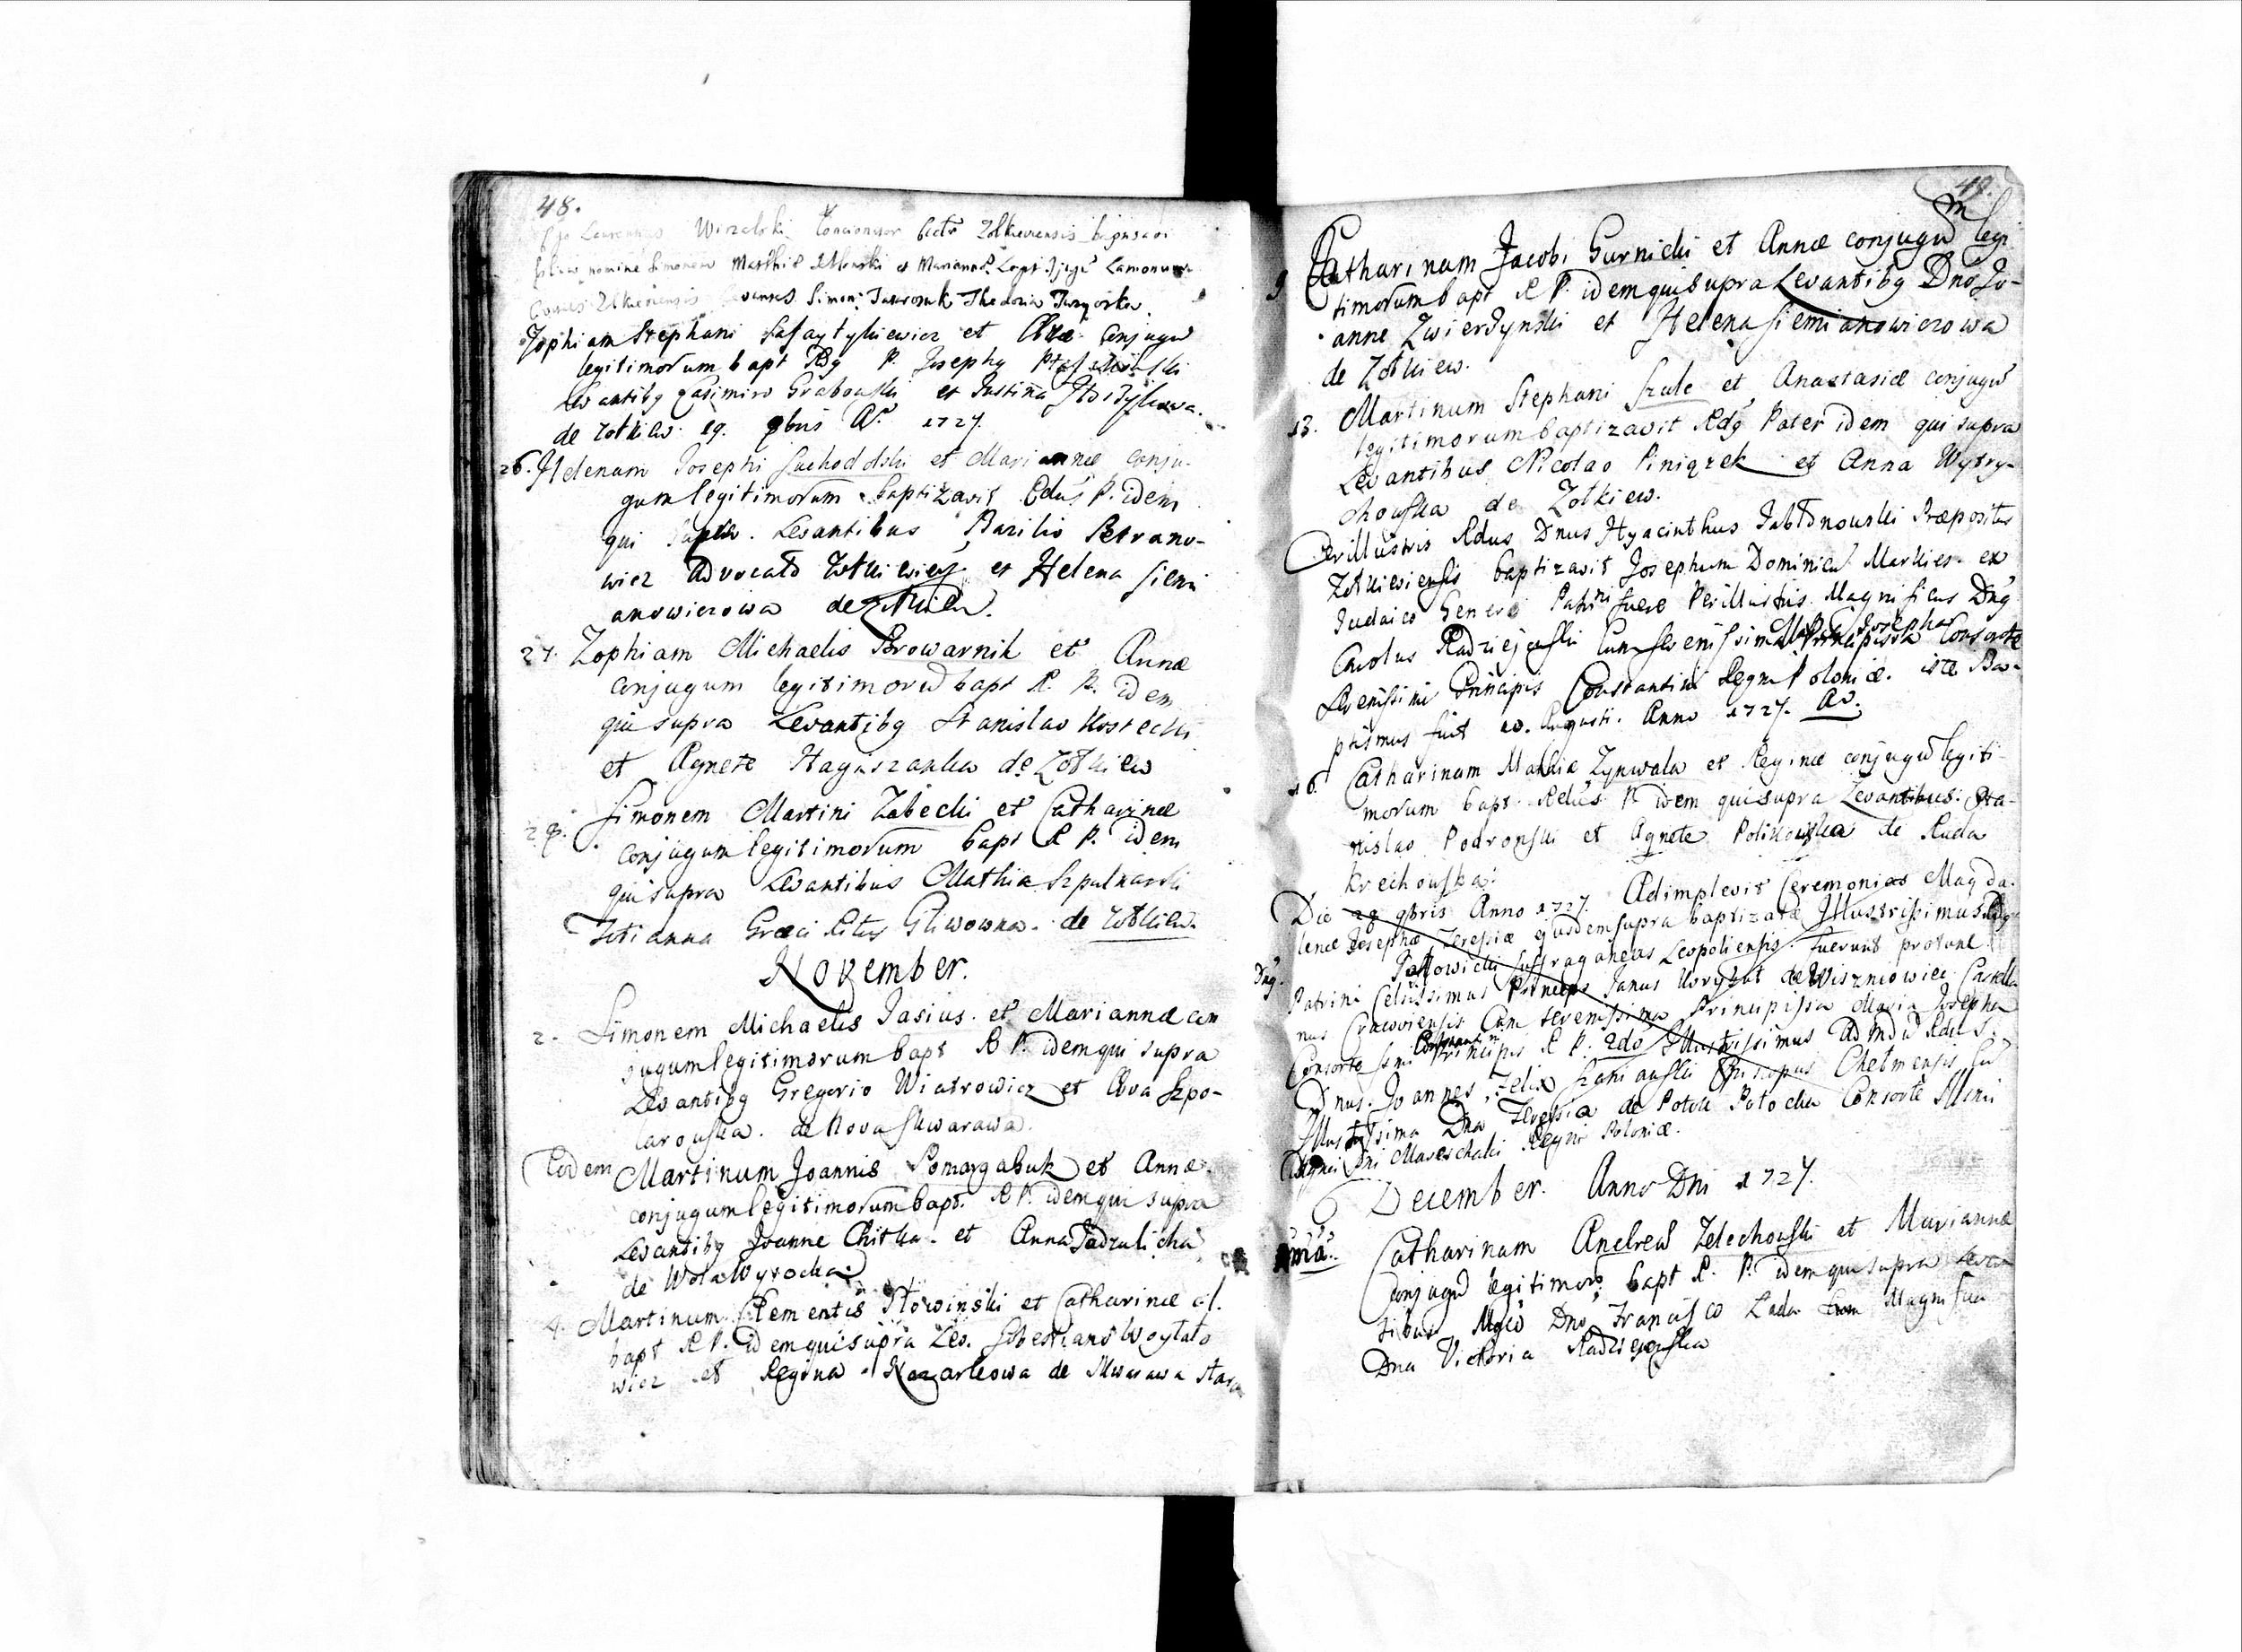 48.
Ego Laurentius Wirzalski Concionator Eccle Zolkieviensis baptisavi
nomine Simonem Mathiæ et Mariannæ
Simon Theodozia
Zophiam Stephani et conjugu
legitimorum bapt Rdg P. Josephg
Levantibg Casimiro Grabowski et Justina
de Zotkiew 19. 8bris Ao. 1727.
26. Helenam Josephi Suchodolski et Mariannæ conju-
gum legitimorum baptizavit Rdus P. idem
qui supra. Levantibus Bazilio Petrano-
wicz Advocato et Helena Siemi
anowiczowa de Zotkiew.
27. Zophiam Michaelis Browarnik et Annæ
conjugum legitimorū bapt R. P. idem
qui supra Levantibg Stanislao Kostecki
et Agnete Haguszanka de Zotkiew
28. Simonem Martini Zabecki et Catharinæ
conjugum legitimorum bapt R P. idem
qui supra Levantibus Mathia Szpulnarski
Tetianna Græci Ritus Gliwowna. de Zotkiew.
November.
2. Simonem Michaelis Jasius. et Mariannæ con
jugum legitimorum bapt R P. idem qui supra
Levantibg Gregorio Wiatrowicz et Eva Szpo-
larouska. de Nova Skwarawa.
Eodem Martinum Joannis Pomargabuk et Annæ.
conjugum legitimorum bapt. R P. idem qui supra
Levantibg Joanne Chitka. et Anna Jadzulicha
de Wola Wysocka
4. Martinum Clementis Stowinski et Catharinæ c. l.
bapt R P. idem qui supra Lev. Sebestiano Woytato
wicz et Regina Nazarkowa de Skwarawa Stara
49.
9 Catharinam Jacobi Gurnicki et Annæ conjugū legi
timorum bapt R P. idem qui supra Levantibg Dno Jo-
anne Zwierdynski et Helena Siemianowiczowa
de Zotkiew.
13. Martinum Stephani Szale et Anastasiæ conjugū
legitimorum baptizavit Rdg Pater idem qui supra
Levantibus Nicolao Piniązek et Anna Wytry-
chouska de Zotkiew.
Perillustris Rdus Dnus Hyacinthus Jabtonouski Præpositus
Zotkieviensis baptizavit Josephum Dominicū Markies. ex
Judaico Genere Patrini fuere Perillustris Magnificus Dng
Carolus Radziejouski Cum Serenissima Maria Josepha Principissa Consorte
Serenissimi Principis Constantini Regni Poloniæ. iste Ba-
ptismus fuit 10. Augusti. Anno 1727. Ao.
16. Catharinam Mathiæ Zynwala et Reginæ conjugū legiti-
morum bapt. Rdus P. idem qui supra Levantibus. Sta-
nislao Podronski et Agnete Polikouska de Ruda
Krechouska.
Die 28 9bris Anno 1727. Adimplevit Ceremonias Magda-
lenæ Josephæ Teressiæ ejusdem supra baptizatæ Illustrissimus
Dng. Suffraganeus Leopoliensis. fuerunt protunc
Patrini Celsissimus Princeps Janus Korybut de Wiszniowiec Castella
nus Cracoviensis Cum Serenissima Principissa Maria Josepha
Consorte Principis Constantini R P. 2do Illustrissimus
Dnus. Joannes Felix Szaniauski Episcopus Chelmensis Cū
Illustrissima Dna Teressia de Potok Potocka Consorte Illmi
Magni Dni Mareschalci Regni Poloniæ.
December. Anno Dni 1727.
1ma. Catharinam Andreæ Zelechouski et Mariannæ
conjugū legitimor. bapt R. P. idem qui supra Levan
tibus Mgco Dno Francisco Lada Magnifica
Dna Victoria Radziejouska